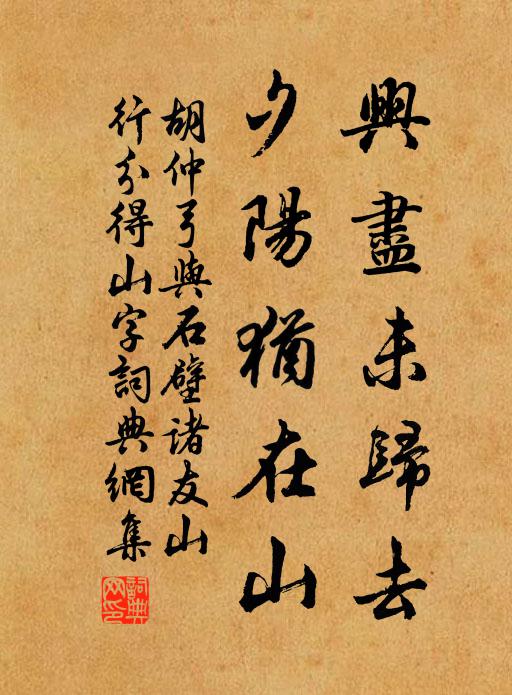 興盡未歸去
夕陽猶在山
胡仲弓與石壁諸友山
行分得山字詞典網集
詞典網印